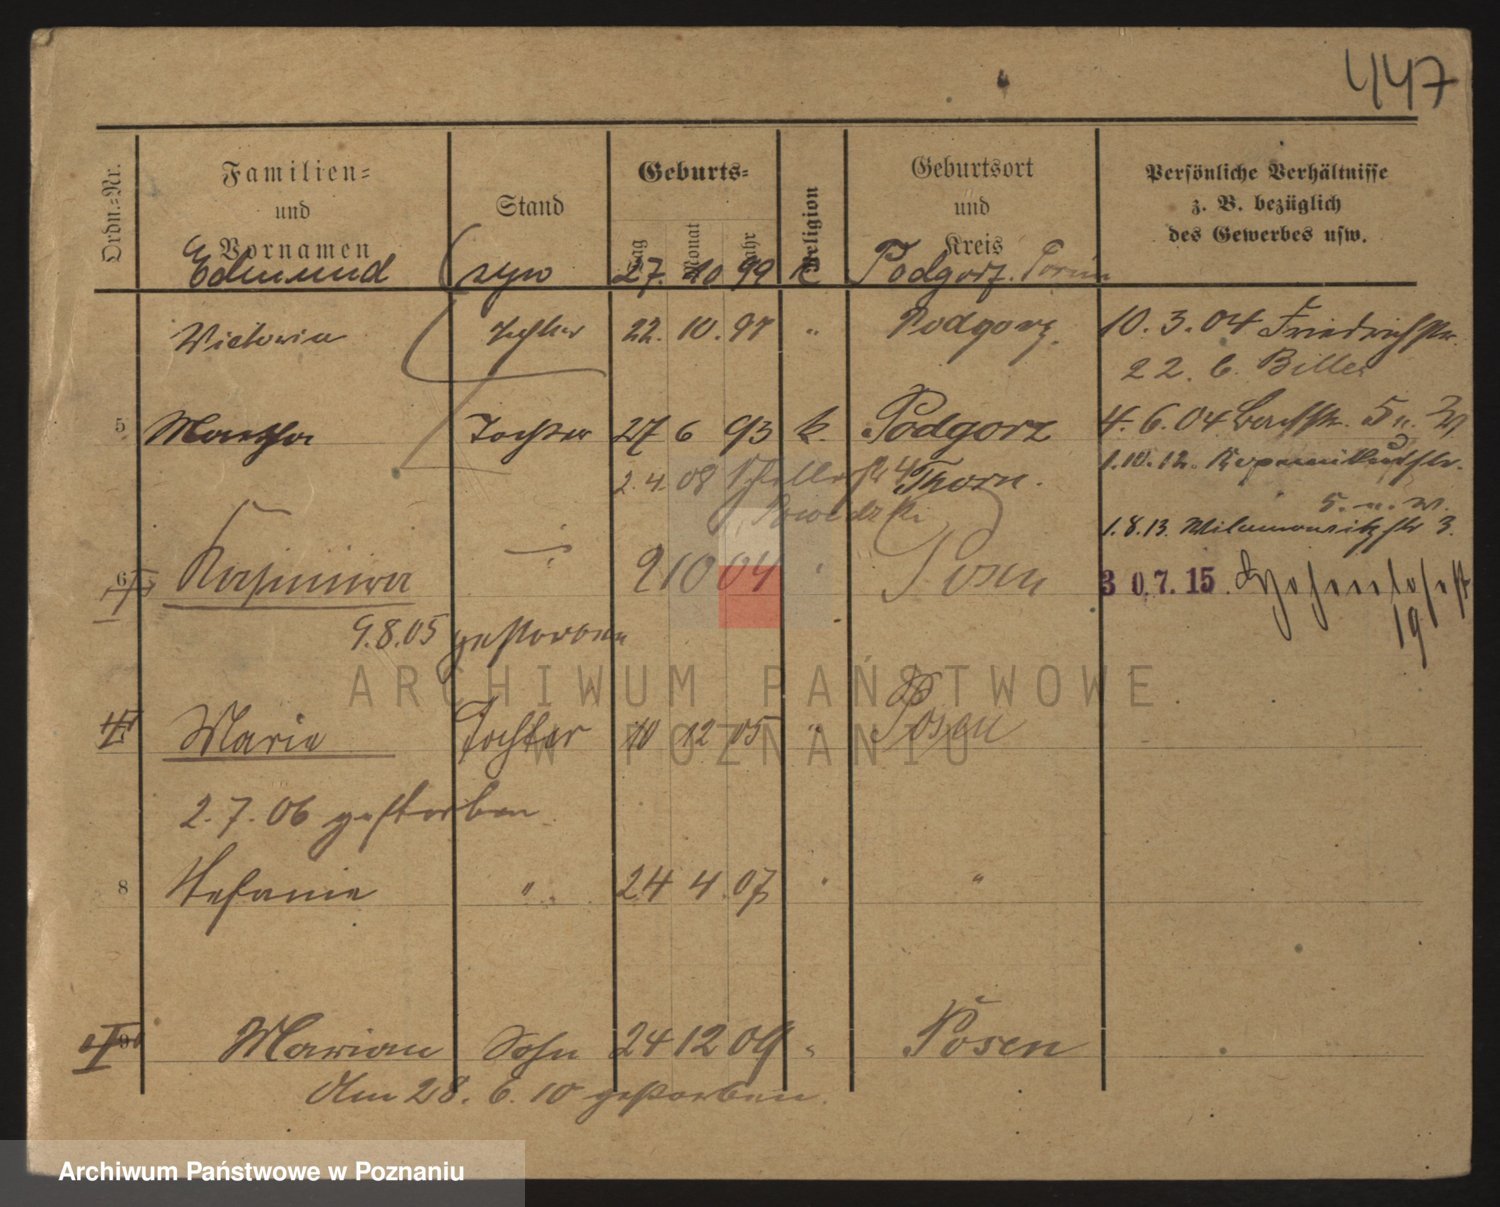 447
Ordn.-Nr.
Familien-
und
Vornamen
Stand
Geburts-
Tag
Monat
Jahr
Religion
Geburtsort
und
Kreis
Persönliche Verhältnisse
z. B. bezüglich
des Gewerbes usw.
Edmund syn 27. 10 99 k Podgorz.
Victoria Tochter 22. 10. 97 " Podgorz. 10. 3. 04 Friedrichstr.
22. b. Biller
5 Martha Tochter 27 6 93 k. Podgorz 4. 6. 04 5
2. 4. 08 Thorn. 1. 10. 12.
5. n. W.
1. 8. 13. 3.
6 Kasimira 2 10 04 Posen 30.7.15.
19
9.8.05 gestorben
Marie Tochter 10 12 05 " Posen
2. 7. 06 gestorben
8 Stefanie " 24 4 07 " "
9 Marian Sohn 24 12 09 " Posen
Am 28. 6. 10 gestorben.
ARCHIWUM PAŃSTWOWE
W POZNANIU
Archiwum Państwowe w Poznaniu